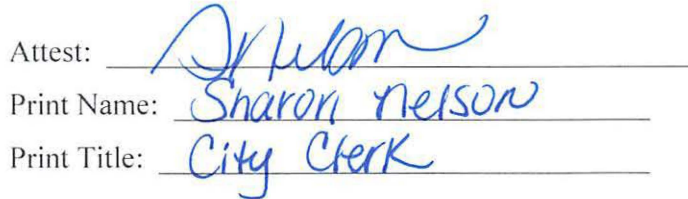 Attest:
Print Name: Sharon Nelson
Print Title: City Clerk